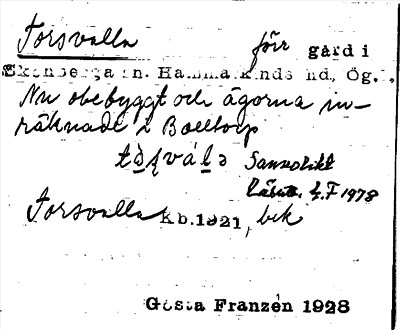 Torsvalla förr gård i
Skönberga sn. Hammarkinds hd, Ög.
Nu obebyggt och ägorna in-
räknade i Boeltorp
Sannolikt
L.F 1978
Torsvalla Kb.1921, bek
Gösta Franzén 1928